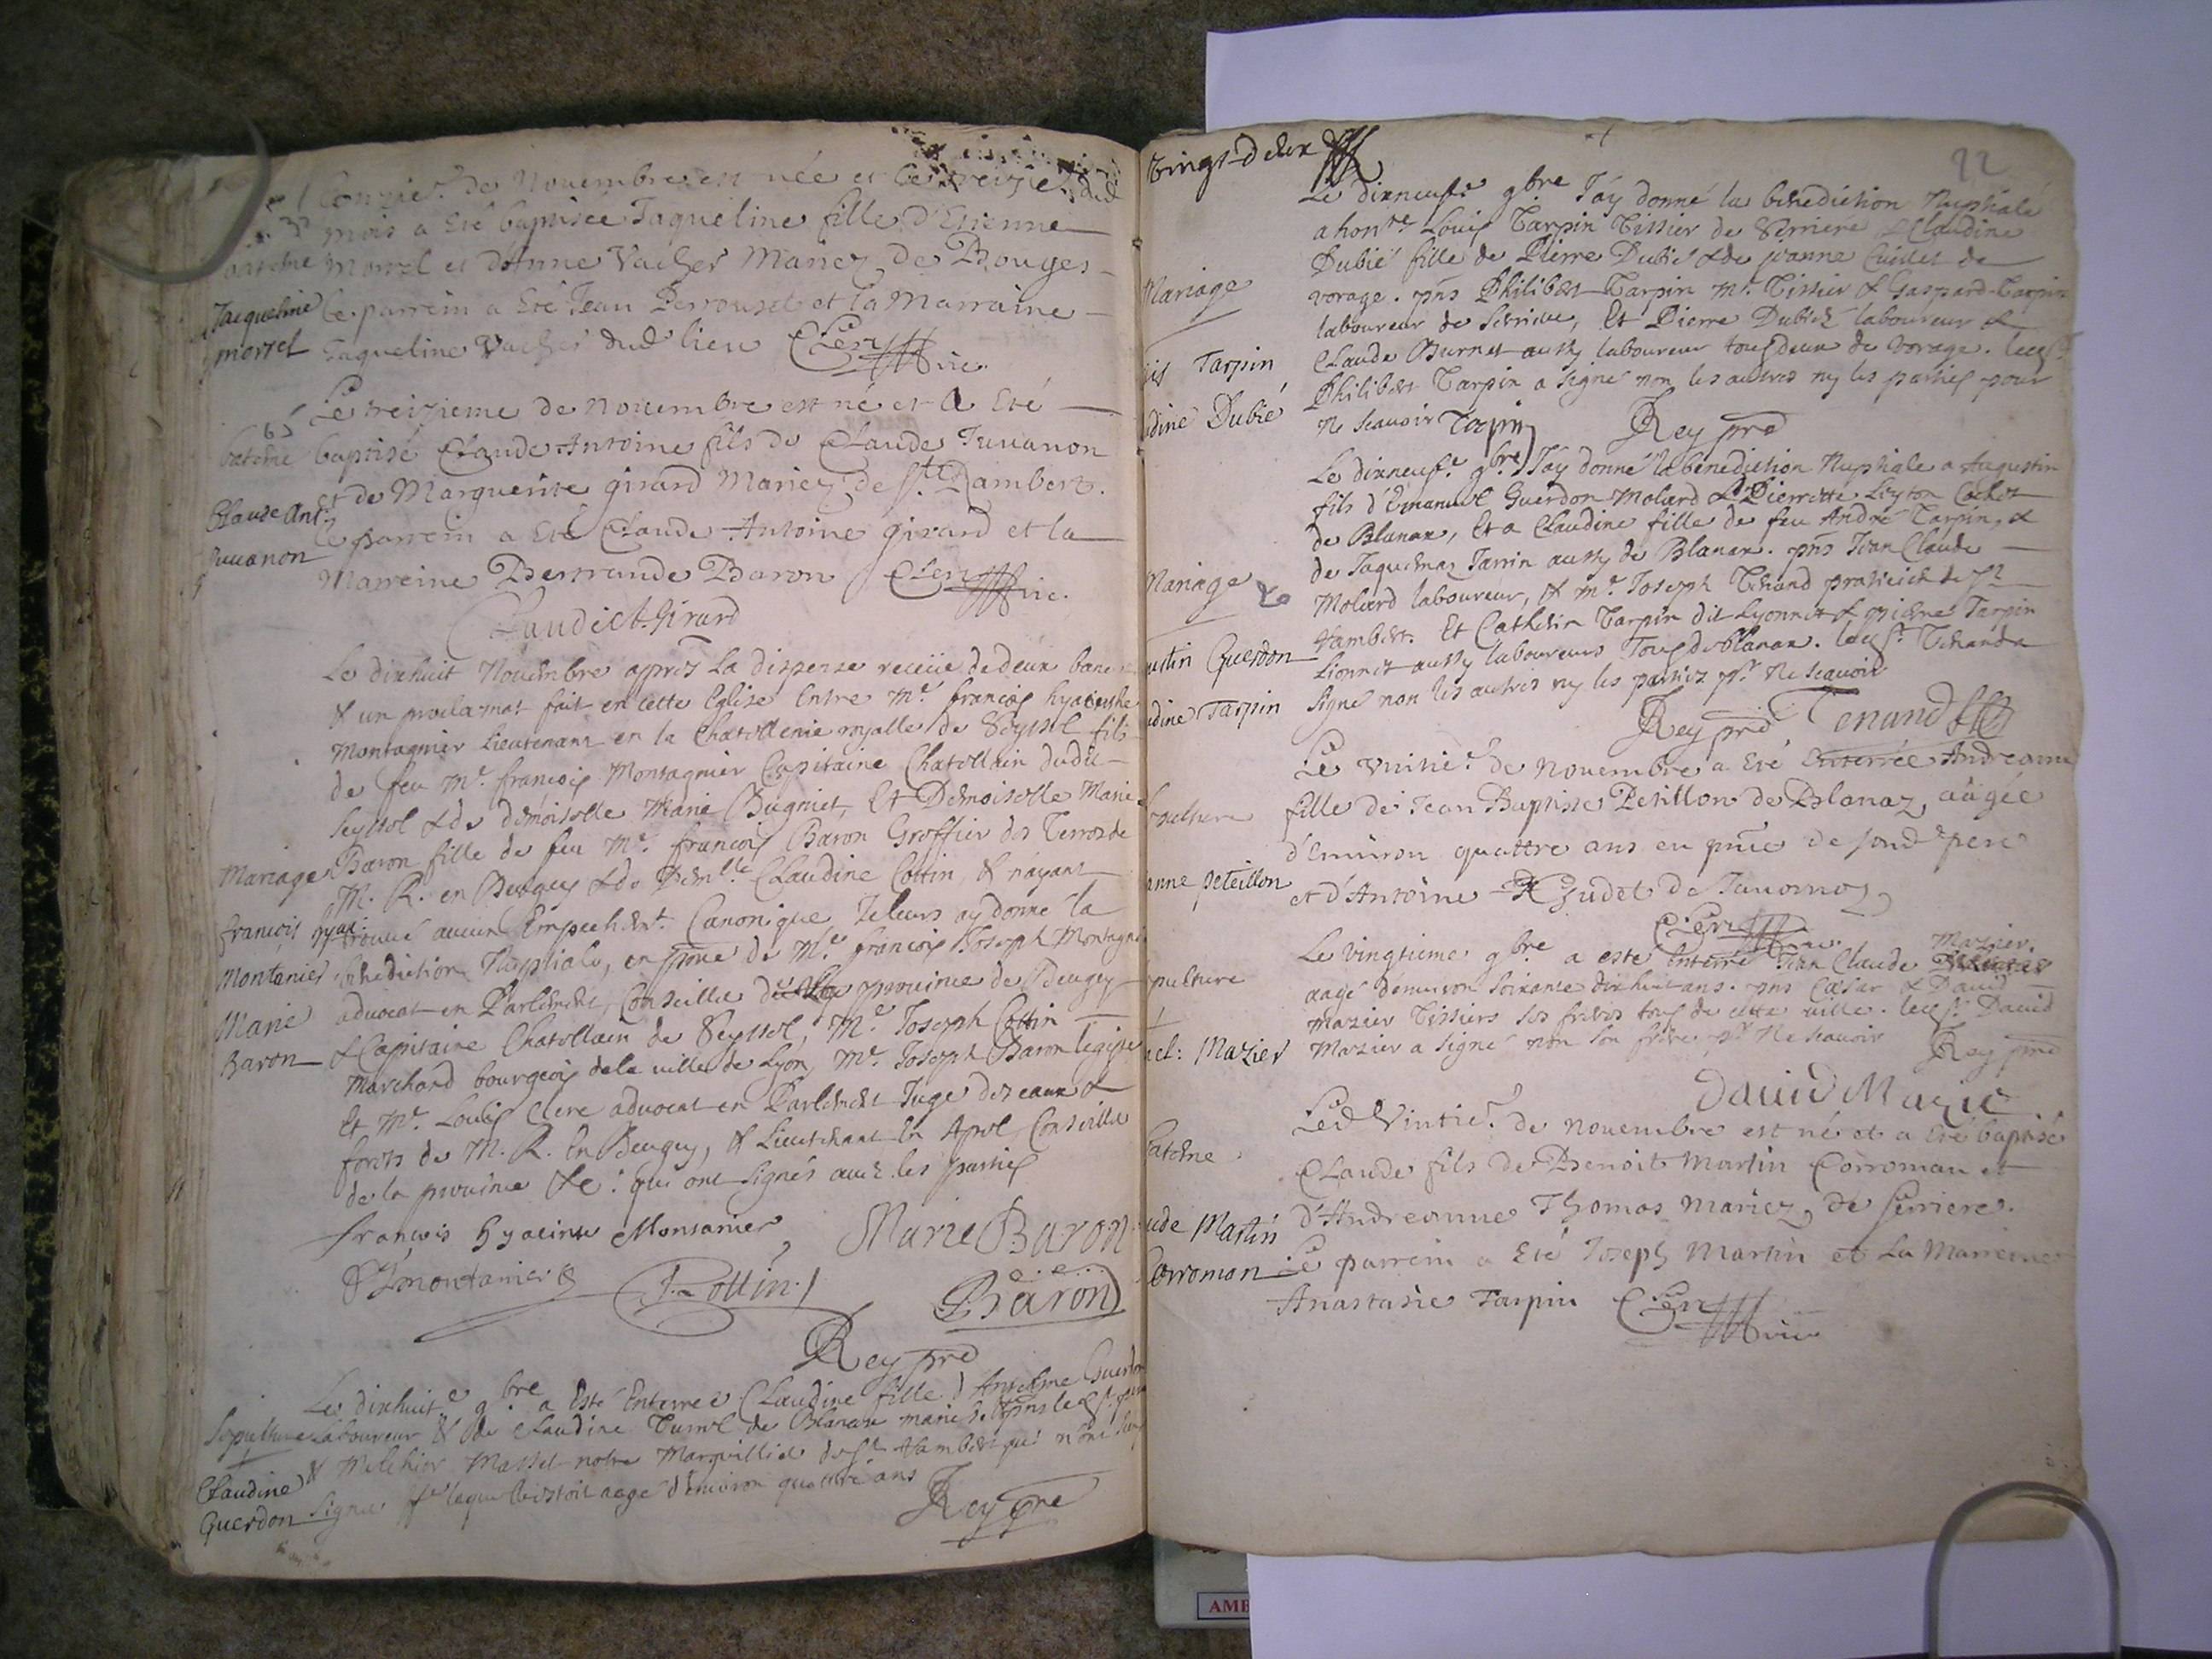 Lonzie.e de Nouembre est née et le treizie.e dud
mois a Eté baptisée Jaqueline fille d'Etienne
Morrel et d'Anne Vacher Mariez de Bouges
Jacqueline
morrel
le parrein a Eté Jean Perrouset et la Marraine
Jaqueline Vacher dud lieu Clerc vic.
Le treizieme de Nouembre est né et A Eté
batême
Claude Ant:
Juuanon
baptisé Claude Antoine fils de Claude Juuanon
et de Marguerite girard Mariez de St. Rambert.
le parrein a Eté Claude Antoine girard et la
Marreine Bertrande Baron Clerc vic.
Claude A. Girard
Le dixhuit Nouembre apprés La dispense receüe de deux bancs
& un proclamat fait en cette Eglise Entre Me. françois hyacinthe
Montagnier Lieutenant en la Chatellenie royalle de Seyssel fils
de feu Me. françois Montagnier Capitaine Chatellain dudit
Seyssel & de demoiselle Marie Bugniet, Et Demoiselle Marie
Mariage
françois hyac:
Montanier
Marie
Baron
Baron fille de feu Me. françois Baron Greffier des Terres de
M. R. en Beugey & de Demlle. Claudine Cottin & n'ayant
trouué aucun Empechemt. Canonique Je leurs ay donné la
benediction Nuptiale, en pnce de Me. françois Joseph Montagnier
aduocat en Parlement, Conseiller prouince de Beugey
& Capitaine Chatellain de Seyssel, Me. Joseph Cottin
Marchand bourgeois de la ville de Lyon, Me. Joseph Baron legiste
Et Me. Louis Clerc aduocat en Parlement Juge des eaux &
forets de M. R. En Beugey, & Lieutenant En Conseiller
de la prouince &c: qui ont signés auec les parties
françois hyacinte Montanier Marie Baron
montanier J. Cottin Baron
Rey pre
Sepulture
Claudine
Guerdon
Le dixhuit.e 9bre a Esté Enterrée Claudine fille d'Anthelme Guerdon
Laboureur & de Claudine de Blanaz
& Melchior Masset notre Marguillier de St. Rambert qui n'ont sceu
signer laquelle estoit aagé d'enuiron quattre ans
Rey pre
Vingt-deux
22
Mariage
Tarpin
Dubié
Le dixneuf.e 9bre J'ay donné la benediction Nuptiale
a honte. Louis Tarpin Tissier de Serriere & Claudine
Dubié fille de Pierre Dubié & de jeanne Cuillet de
vorage. pns Philibert Tarpin Me. Tissier & Gaspard Tarpin
laboureur de Serriere, Et Pierre Dubié laboureur &
Claude Burnet aussy laboureur tous deux de vorage. leq s.
Philibert Tarpin a signé non les autres ny les parties pour
Ne scauoir Tarpin Rey pre
Mariage
Guerdon
Tarpin
Le dixneuf.e 9bre J'ay donné la benediction Nuptiale a Augustin
fils d'Emanuel Guerdon Molard & Pierrette Leyton Cachet
de Blanaz, Et a Claudine fille de feu André Tarpin, &
de Jaquemaz Janin aussy de Blanaz. pns Jean Claude
Molard laboureur, & Me. Joseph Tenand praticien de St
Rambert. Et Cathelin Tarpin dit Lyonnet & Tarpin
Lionnet aussy laboureurs Tous de Blanaz. leq s. Tenand a
signé non les autres ny les parties pr. Ne scauoir
Rey pre Tenand
Sepulture
anne peteillon
Le vuitie.e de Nouembre a Eté Enterrée Andreanne
fille de Jean Baptiste Petillon de Blanaz, aagée
d'Enuiron quattre ans en pnce de sond pere
et d'Antoine Gudet de Jauornoz
Clerc vic.
Sepulture
Mazier
Le vingtieme 9bre a esté Enterré Jean Claude Mazier.
aagé d'enuiron soixante dixhuit ans. pns Cæsar & Dauid
Mazier Tissiers ses freres tous de cette ville. leq s. Dauid
Mazier a signé non son frere pr. Ne scauoir Rey pre
Dauid Mazie
Batême
Claude Martin
Corroman
Led Vintie.e de Nouembre est né et a Eté baptisé
Claude fils de Benoit Martin Corroman et
d'Andreanne Thomas Mariez, de Serriere.
Le parrein a Eté Joseph Martin et La Marreine
Anastasie Tarpin Clerc vic
AMB